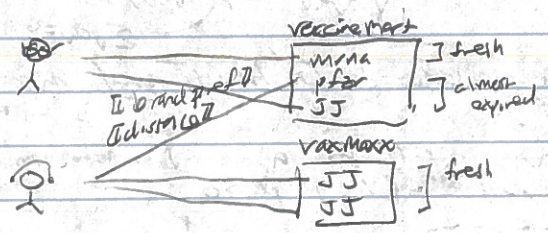 vaccinemart
mrna
pfzr
JJ
] fresh
] almost
expired
[[brand pref]]
[[distance]]
vaxmaxx
JJ
JJ
] fresh